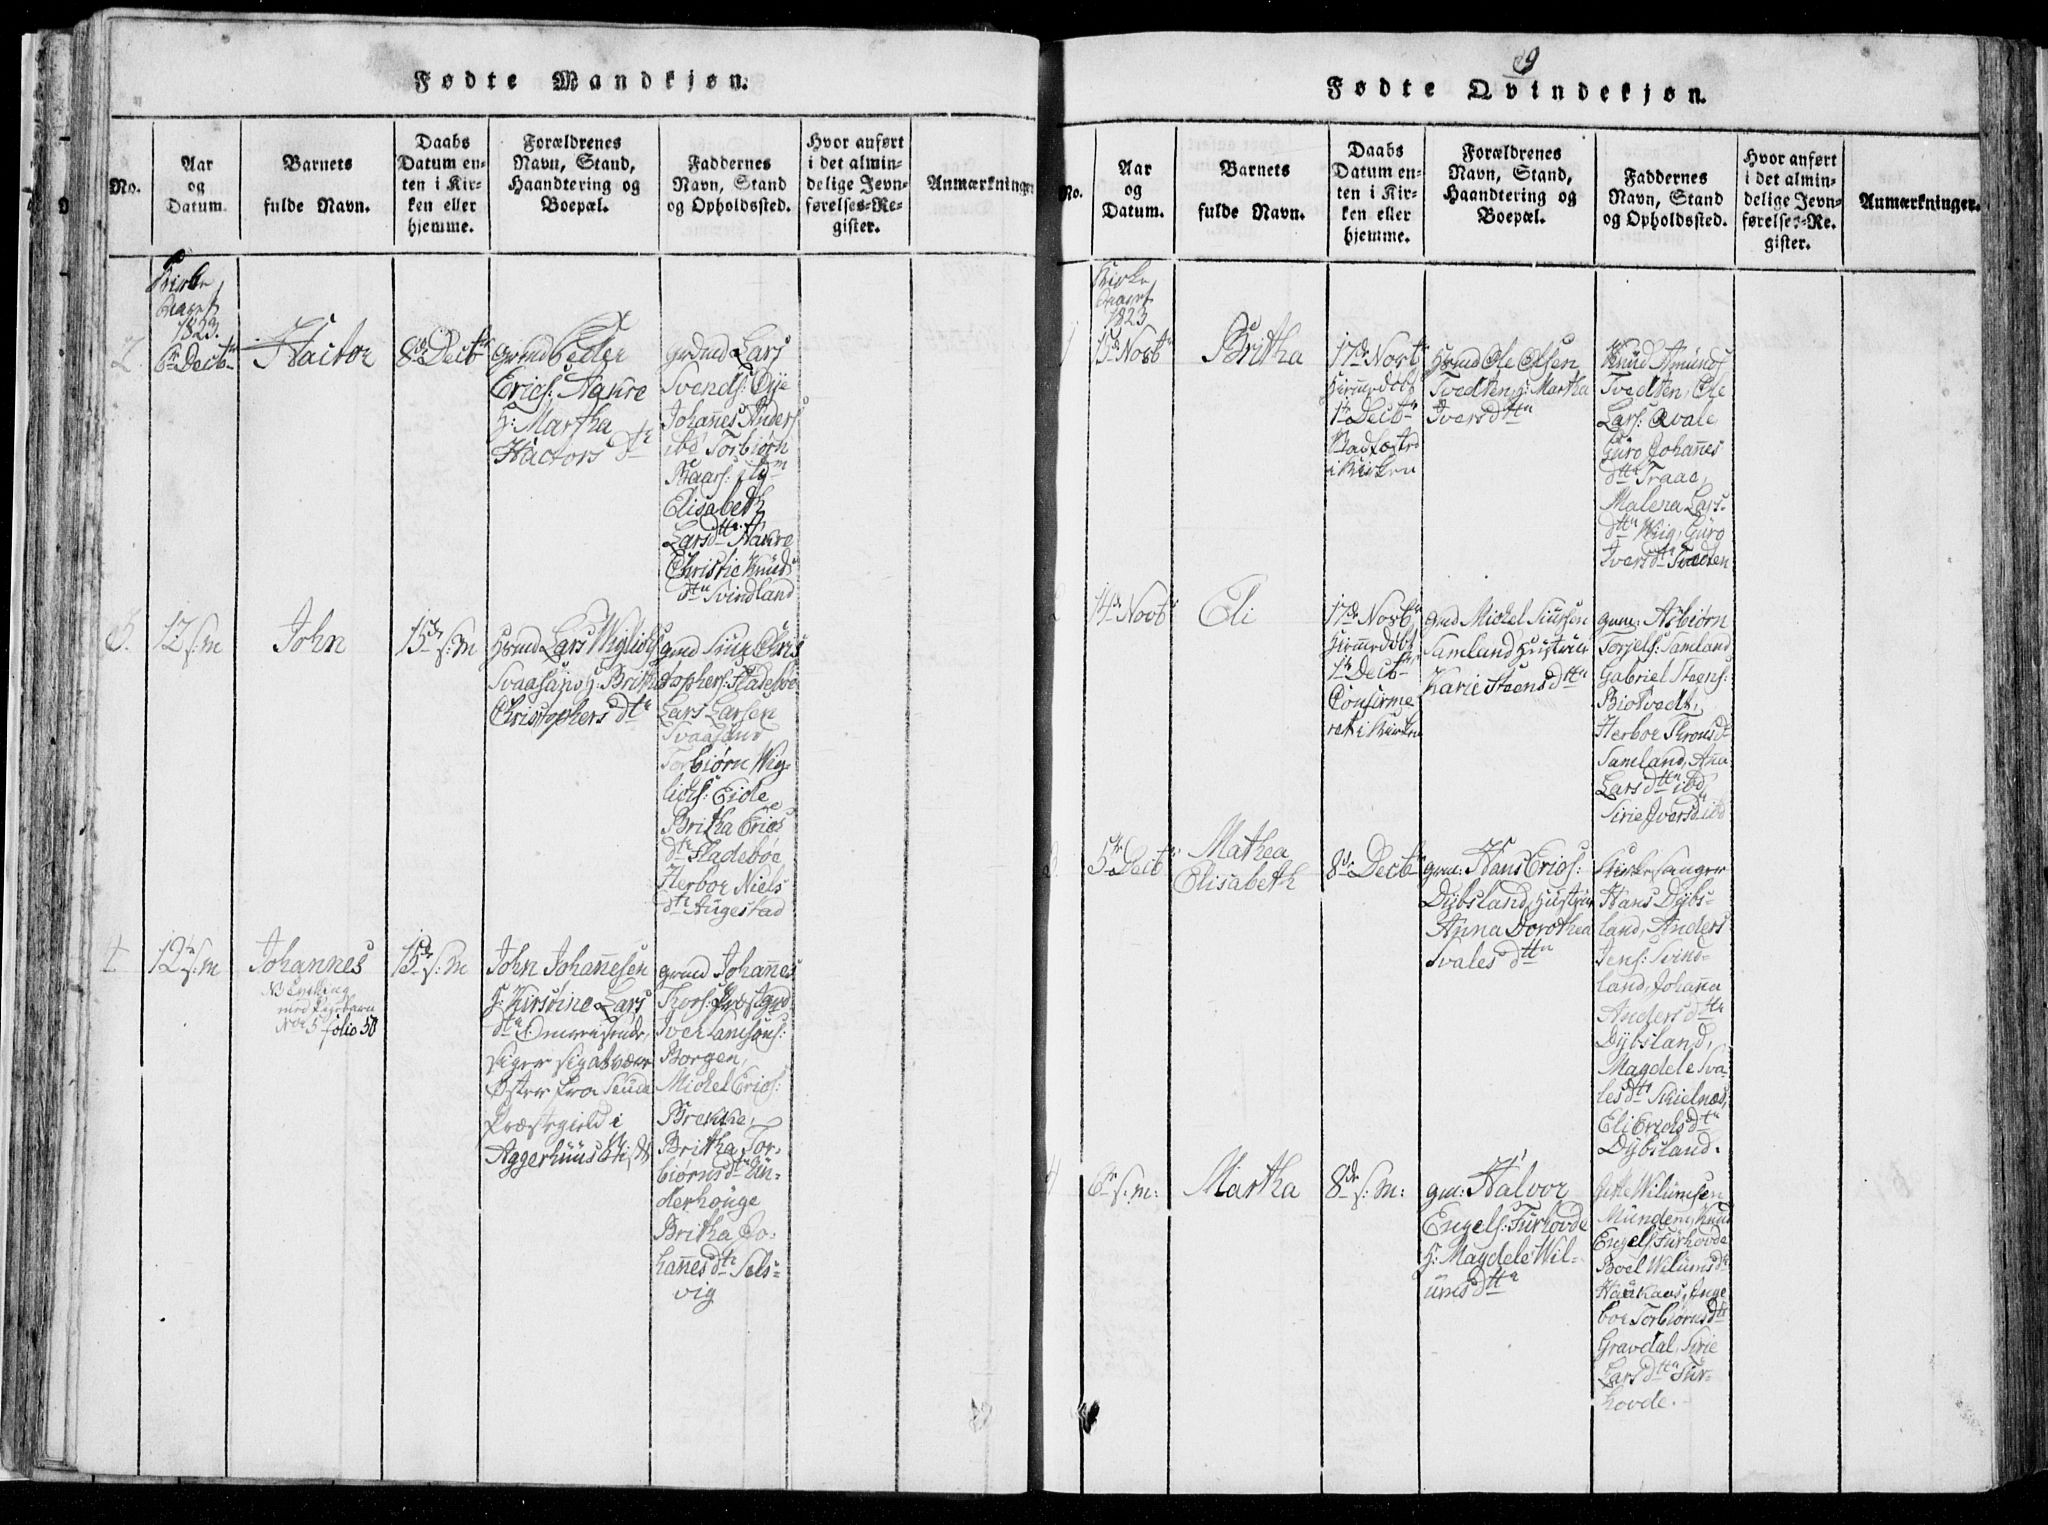 Fødte Mandkjøn.
No.
Aar
og
Datum.
Barnets
fulde Navn.
Daabs
Datum en-
ten i Kir-
ken eller
hjemme.
Forældrenes
Navn, Stand,
Haandtering og
Boepæl.
Faddernes
Navn, Stand
og Opholdssted.
Hvor anført
i det almin-
delige Jevn-
førelses-Re-
gister.
Anmærkninger
Kirke
Aaret
1823.
2.
6te Decbr
Hactor
8de Decbr
Grmd Peder
Erics: Aakre
H: Martha
Hactors dtr
Grdmd Lars
Svends: Øÿe
Johan̄es Anders
ibd Torbiørn
Baars:
Elisabeth
Larsdtr: Aakre
Christie Knüds
dtr Svindland
3.
12 s:m
John
15de s:m
Lars Wiglichs
Svaasand H: Britha
Christophers dtr
gmd Siur Chris
tophers: Fladebøe
Lars Larsen
Svaasand
Torbiørn Wig-
lichs: Eide
Britha Erics
dtr Fladebøe
Herbor Niels
dtr Augestad
4.
12te s:m
Johannes
NB Tvilling
med Pigebarn
Nor 5 folio 50
15de s:m
John Johan̄esen
H: Kirstine Lars
dtr Omreisende,
siger sig at være
Øster fra Seude
Præstegield i
Aggerhüüs Stift
grmd Johan̄es
Thors: Præstgrd
Iver Samsons:
Borgen,
Michel Erics:
Brekke,
Britha Tor-
biørnsdtr Ün-
derhouge
Britha Jo-
han̄esdtr Sels-
vig
9
Fødte Qvindekjøn.
No.
Aar
og
Datum.
Barnets
fulde Navn.
Daabs
Datum en-
ten i Kir-
ken eller
hjemme.
Forældrenes
Navn, Stand,
Haandtering og
Boepæl.
Faddernes
Navn, Stand
og Opholdssted.
Hvor anført
i det almin-
delige Jevn-
førelses-Re-
gister.
Anmærkninger.
Kirke
Aaret
1823
1
15de Novbr
Britha
17de Novbr
hiemmedøbt
1te Decbr
Stadfæsted
i Kirken
Ole Olsen
Tvedten, H: Martha
Iversdtr
Knüd Amünds
Tvedten, Ole
Lars: Qvale
Güro Johan̄es
dtr Traae,
Malena Lars-
dtr Wiig, Güro
Iversdtr Tvedten
14de Novbr
Eli
17de Novbr
hiemmedøbt
1te Decbr
Confirme
ret i Kirken
gmd Michel Siursen
Samland Hustrue
Karie Steensdtr
gmd: Asbiørn
Torgels: Samland
Gabriel Steens:
Biotvedt,
Herbor Throndsd
Samland, An̄a
Larsdtr ibd,
Sirie Iversd ibd
3.
5te Decbr
Mathea
Elisabeth
8de Decbr
gmd: Hans Erics:
Dÿbsland, Hustrue
Anna Dorothea
Svalesdtr
Kirkesanger
Hans Dÿbs-
land, Anders
Jens: Svind-
land, Johan̄a
Andersdtr
Dÿbsland,
Magdele Sva-
lesdtr Skielnæs,
Eli Ericsdtr
Dÿbsland.
4
6te s:m:
Martha
8de s:m:
gmd: Halvor
Engels: Fürhovde
H: Magdele Wil-
ümsdtr
Gitle Wilümsen
Münden, Knüd
Engels: Fürhovde
Boel Wilümsdr
Haükaas, Inge
bor Torbiørnsdtr
Gravdal, Sirie
Larsdtr Für-
hovde.